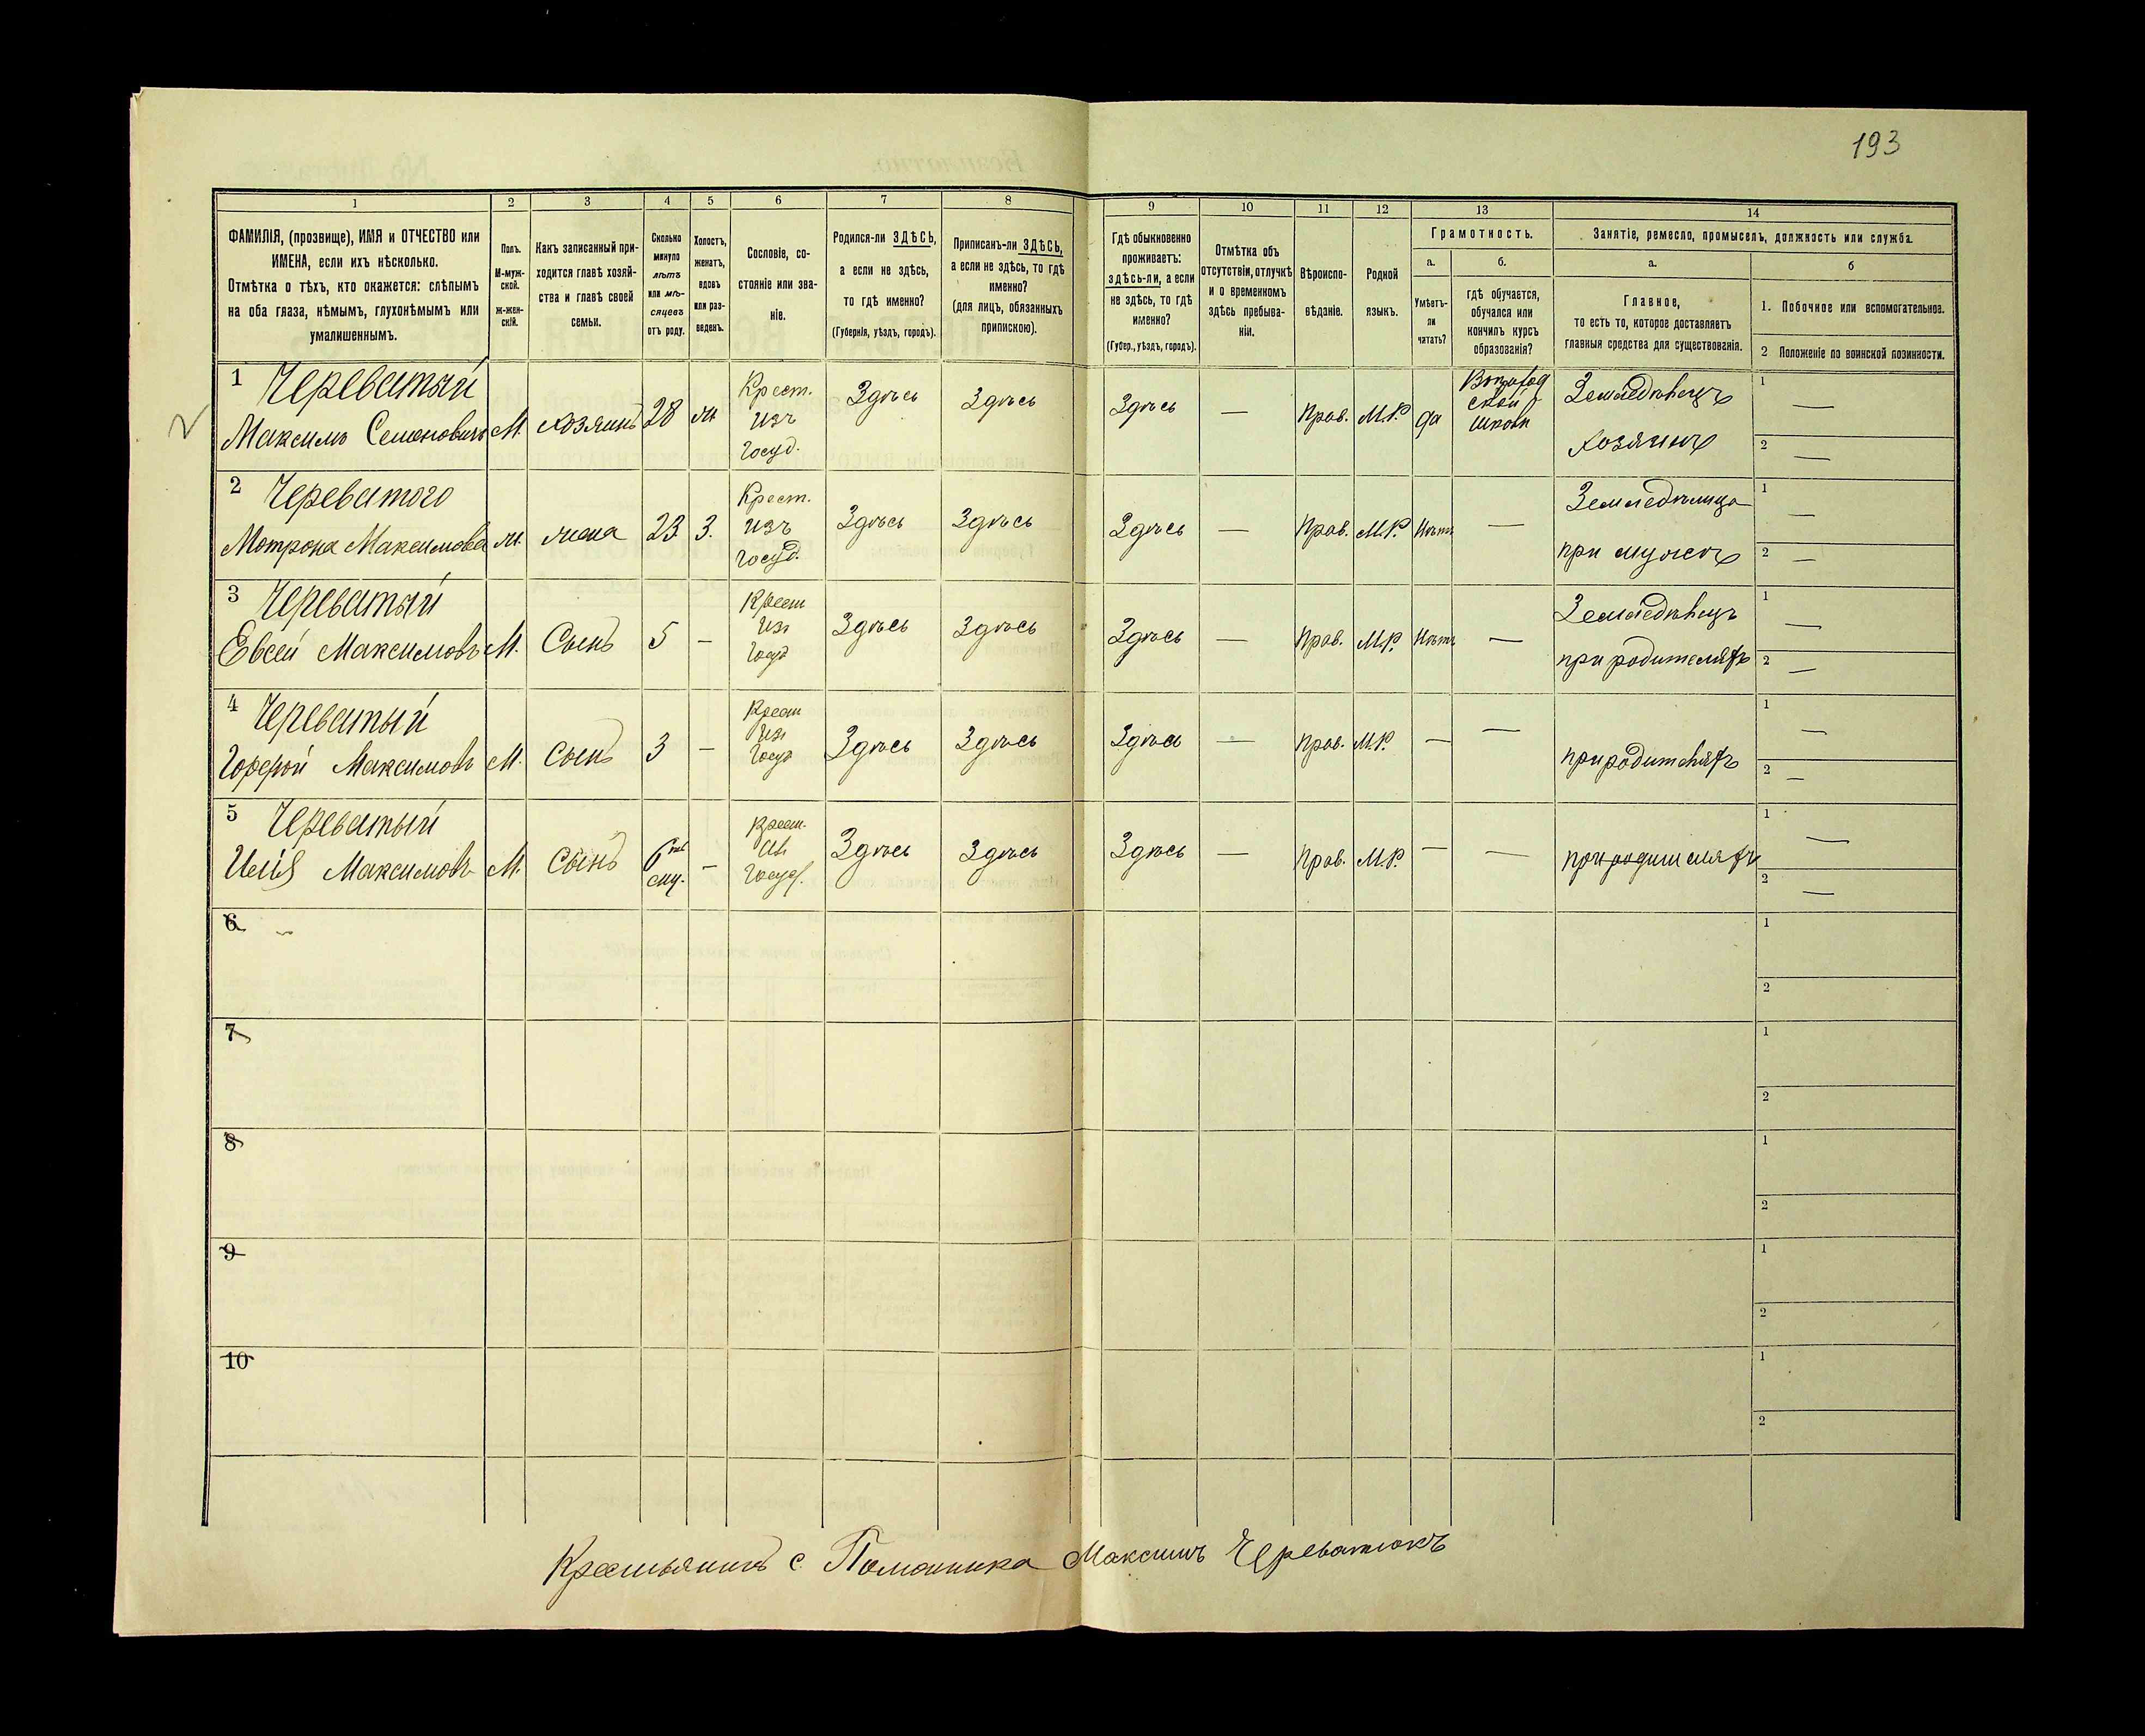 193
1
2
3
4
5
6
7
8
9
10
11
12
13
14
ФАМИЛІЯ, (прозвище), ИМЯ и ОТЧЕСТВО или
ИМЕНА, если ихъ нѣсколько.
Отмѣтка о тѣхъ, кто окажется: слѣпымъ
на оба глаза, нѣмымъ, глухонѣмымъ или
умалишеннымъ.
Полъ.
М-муж-
ской.
ж-жен-
скій.
Какъ записанный при-
ходится главѣ хозяй-
ства и главѣ своей
семьи.
Сколько
минуло
лѣтъ
или мѣ-
сяцевъ
отъ роду.
Холостъ,
женатъ,
вдовъ
или раз-
веденъ.
Сословіе, со-
стояніе или зва-
ніе.
Родился-ли ЗДѢСЬ,
а если не здѣсь,
то гдѣ именно?
(Губернія, уѣздъ, городъ).
Приписанъ-ли ЗДѢСЬ,
а если не здѣсь, то гдѣ
именно?
(для лицъ, обязанныхъ
припискою).
Гдѣ обыкновенно
проживаетъ:
здѣсь-ли, а если
не здѣсь, то гдѣ
именно?
(Губер., уѣздъ, городъ).
Отмѣтка объ
отсутствіи, отлучкѣ
и о временномъ
здѣсь пребыва-
ніи.
Вѣроиспо-
вѣданіе.
Родной
языкъ.
Грамотность.
а.
Умѣетъ-
ли
читать?
б.
гдѣ обучается,
обучался или
кончилъ курсъ
образованія?
Занятіе, ремесло, промыселъ, должность или служба.
а.
Главное,
то есть то, которое доставляетъ
главныя средства для существованія.
б
1. Побочное или вспомогательное.
2 Положеніе по воинской повинности.
1 Череватый
Максимъ Семеновичъ
М. хозяинъ 28 ж
Крест.
изъ
Госуд.
Здѣсь Здѣсь Здѣсь — Прав. М.Р. да
ской
школѣ
Земледѣлецъ
хозяинъ
1 —
2 —
2 Череватого
Мотрона Максимова
ж. жена 23 З.
Крест.
изъ
Госуд.
Здѣсь Здѣсь Здѣсь — Прав. М.Р. Нѣтъ —
Земледѣлица
при мужѣ
1 —
2 —
3 Череватый
Евсей Максимовъ
М. Сынъ 5 —
Крест
изъ
Госуд
Здѣсь Здѣсь Здѣсь — Прав. М.Р. Нѣтъ —
Земледѣлецъ
при родителяхъ
1 —
2 —
4 Череватый
Максимовъ
М. Сынъ 3 —
Крест
изъ
Госуд
Здѣсь Здѣсь Здѣсь — Прав. М.Р. — —
при родителяхъ
1 —
2 —
5 Череватый
Илія Максимовъ
М. Сынъ 6 —
Крест.
изъ
Госуд.
Здѣсь Здѣсь Здѣсь — Прав. М.Р. — —
при родителяхъ
1 —
2 —
6
1
2
7
1
2
8
1
2
9
1
2
10
1
2
Крестьянинъ с. Максимъ